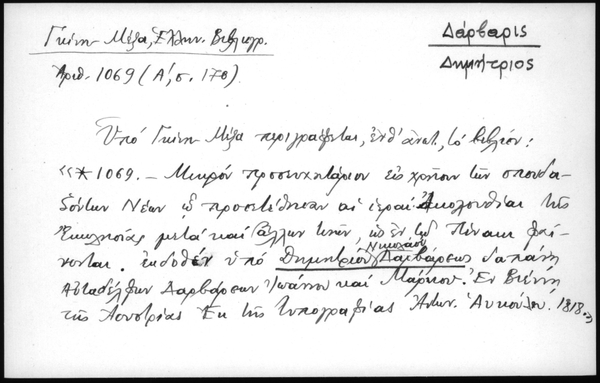 Γκίνη - Μέξα, Ελλην. Βιβλιογρ.
Αριθ. 1069 (Α', σ. 170).
Δάρβαρις
Δημήτριος
Υπό Γκίνη - Μέξα περιγράφεται, ενθ' ανωτ., το βιβλίον:
«*1069. – Μικρόν προσευχητάριον εις χρήσιν των σπουδα-
ζόντων Νέων ω προσετέθησαν αι ιεραί Ακολουθίαι της
Εκκλησίας μετά και άλλων τινών, ως εν τω Πίνακι φαί-
νονται. εκδοθέν υπό Δημητρίου Νικολάου Δαρβάρεως δαπάνη
Αυταδέλφων Δαρβάρεων Ιωάννου και Μάρκου. Εν Βιέννη
της Αουστρίας Εκ της Τυπογραφίας Αντων. Αυκούλου. 1818.»